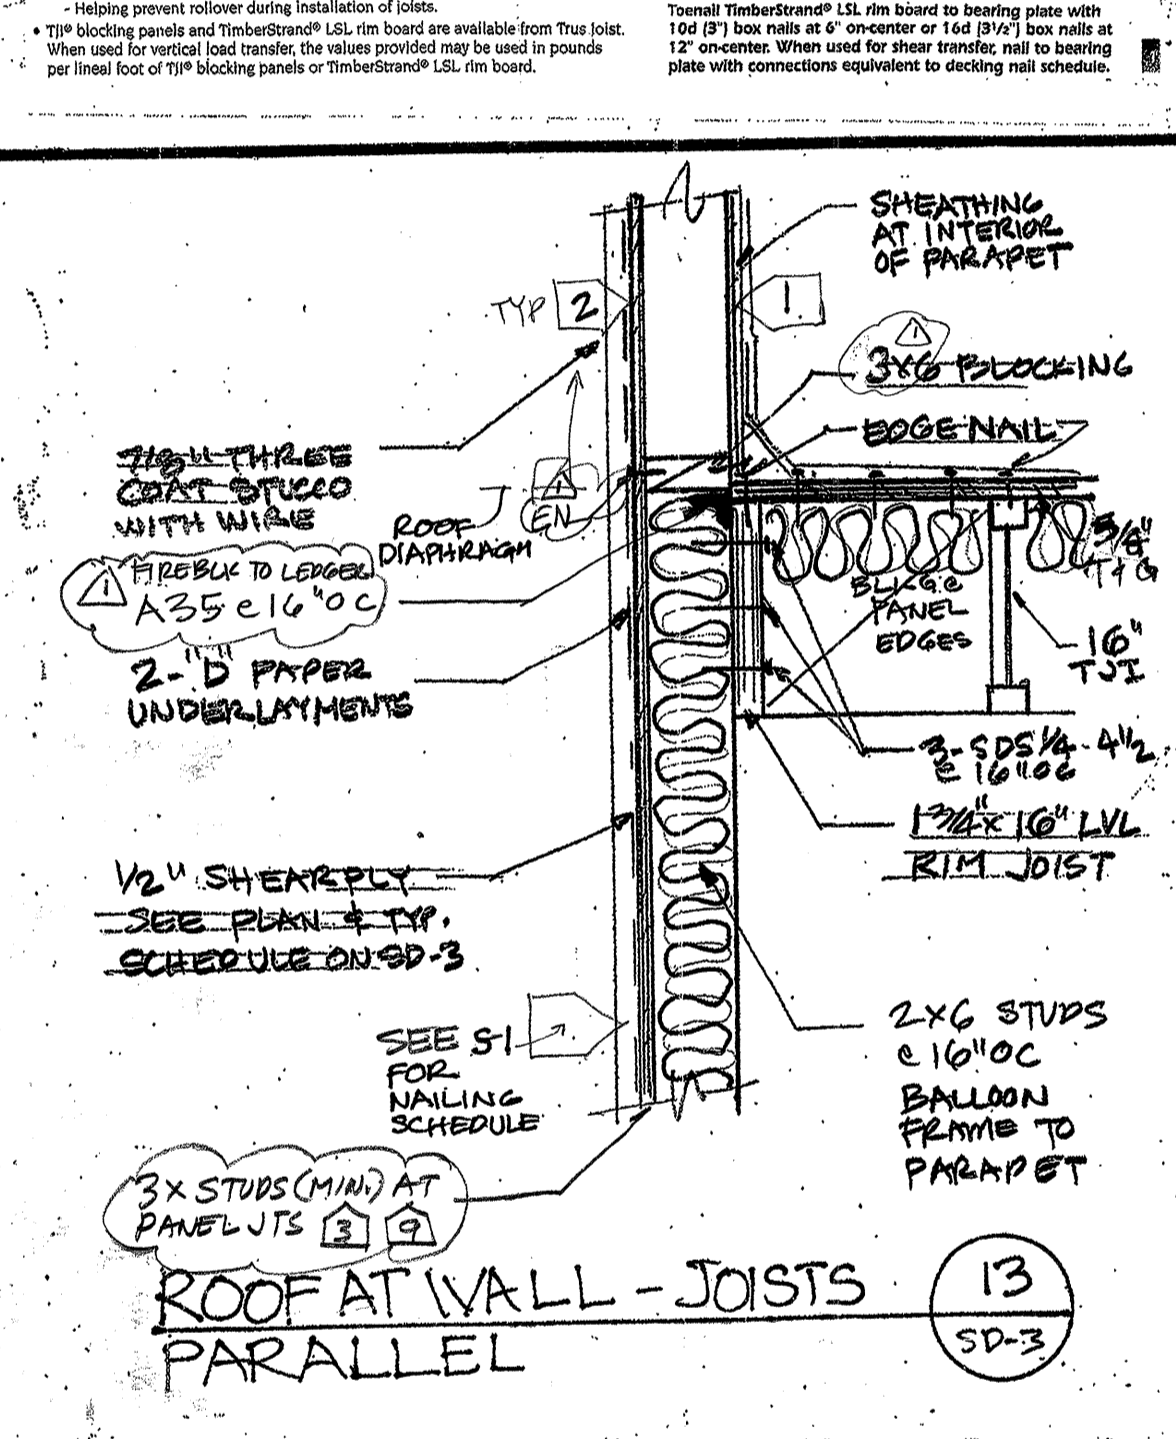 - Helping prevent rollover during installation of joists.
• TJI® blocking panels and TimberStrand® LSL rim board are available from Trus Joist.
When used for vertical load transfer, the values provided may be used in pounds
per lineal foot of TJI® blocking panels or TimberStrand® LSL rim board.
Toenail TimberStrand® LSL rim board to bearing plate with
10d (3") box nails at 6" on-center or 16d (3½") box nails at
12" on-center. When used for shear transfer, nail to bearing
plate with connections equivalent to decking nail schedule.
SHEATHING
AT INTERIOR
OF PARAPET
TYP 2
1
1
3X6 BLOCKING
EDGE NAIL
7/8" THREE
COAT STUCCO
WITH WIRE
1
EN
ROOF
DIAPHRAGM
1
FIREBLK TO LEDGER
A35 @ 16" OC
3/4"
T & G
BLKG @
PANEL
EDGES
16"
TJI
2-"D" PAPER
UNDERLAYMENTS
3-SDS 1/4-4 1/2
@ 16" OC
1 3/4" X 16" LVL
RIM JOIST
1/2" SHEAR PLY
SEE PLAN & TYP.
SCHEDULE ON SD-3
SEE S-1
FOR
NAILING
SCHEDULE
2X6 STUDS
@ 16" OC
BALLOON
FRAME TO
PARAPET
3X STUDS (MIN.) AT
PANEL JTS 3 9
ROOF AT WALL - JOISTS
PARALLEL
13
SD-3